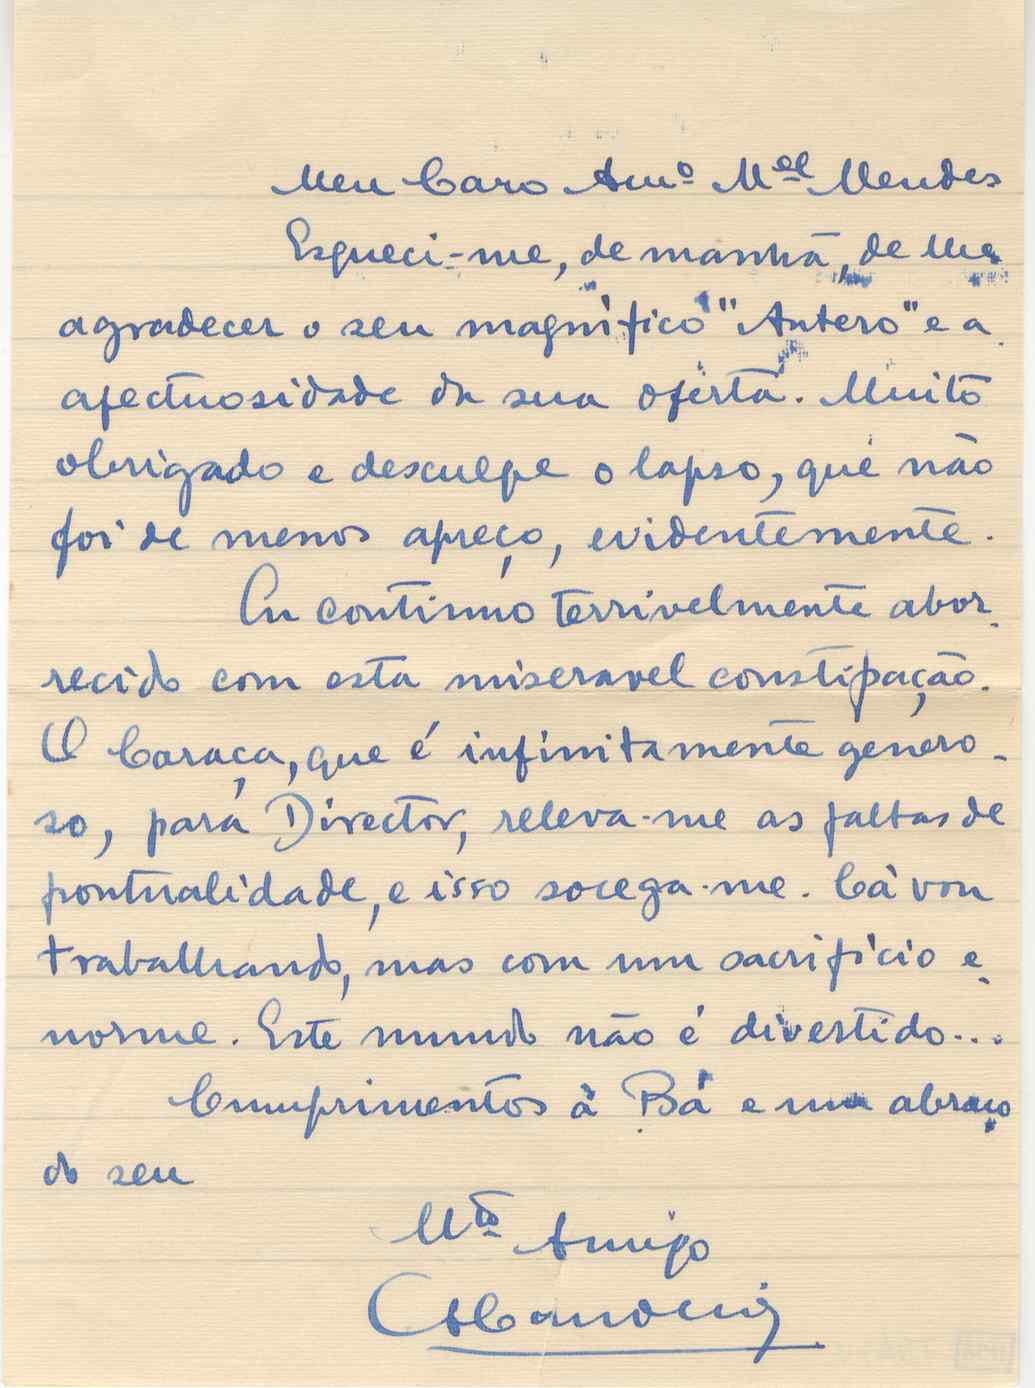 Meu Caro Amº Mel Mendes
Esqueci-me, de manhã, de lhe
agradecer o seu magnífico "Antero" e a
afectuosidade da sua oferta. Muito
obrigado e desculpe o lapso, que não
foi de menos apreço, evidentemente.
Eu continuo terrivelmente abor-
recido com esta miseravel constipação.
O Caraça, que é infinitamente genero-
so, para Director, releva-me as faltas de
pontualidade, e isso socega-me. Cá vou
trabalhando, mas com um sacrifício e-
norme. Este mundo não é divertido...
Cumprimentos à Bá e um abraço
do seu
Mto Amigo